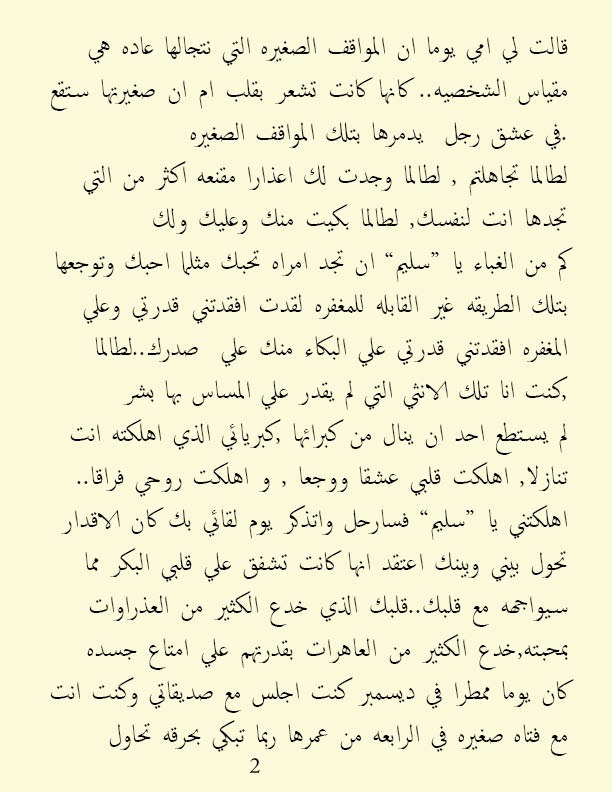 قالت لي امي يوما ان المواقف الصغيره التي نتجالها عاده هي
مقياس الشخصيه.. كانها كانت تشعر بقلب ام ان صغيرتها ستقع
.في عشق رجل يدمرها بتلك المواقف الصغيره
لطالما تجاهلتم , لطالما وجدت لك اعذارا مقنعه اكثر من التي
تجدها انت لنفسك, لطالما بكيت منك وعليك ولك
كم من الغباء يا ”سليم“ ان تجد امراه تحبك مثلما احبك وتوجعها
بتلك الطريقه غير القابله للمغفره لقدت افقدتني قدرتي وعلي
المغفره افقدتني قدرتي علي البكاء منك علي صدرك..لطالما
,كنت انا تلك الانثي التي لم يقدر علي المساس بها بشر
لم يستطع احد ان ينال من كبرائها ,كبريائي الذي اهلكته انت
تنازلا, اهلكت قلبي عشقا ووجعا , و اهلكت روحي فراقا..
اهلكتني يا ”سليم“ فسارحل واتذكر يوم لقائي بك كان الاقدار
تحول بيني وبينك اعتقد انها كانت تشفق علي قلبي البكر مما
سيواجهه مع قلبك..قلبك الذي خدع الكثير من العذراوات
بمحبته,خدع الكثير من العاهرات بقدرتهم علي امتاع جسده
كان يوما ممطرا في ديسمبر كنت اجلس مع صديقاتي وكنت انت
مع فتاه صغيره في الرابعه من عمرها ربما تبكي بحرقه تحاول
2